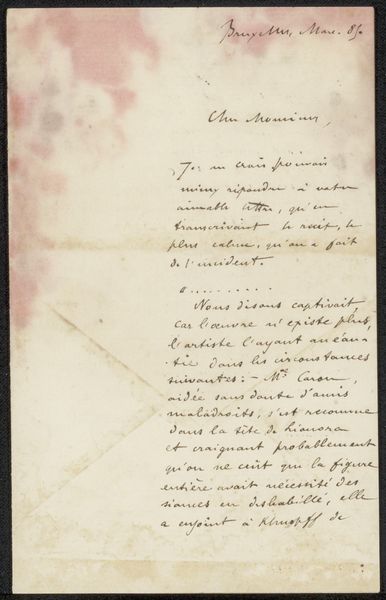 Bruxelles, Mars. 85.
Cher Monsieur,
Je ne crois pouvoir
mieux répondre à votre
aimable lettre, qu'en
transcrivant le récit, le
plus calme, qu'on a fait
de l'incident.
"..........
Nous disons captivait,
car l'œuvre n'existe plus,
l'artiste l'ayant anéan-
tie dans les circonstances
suivantes: - Mlle Caron,
aidée sans doute d'amis
maladroits, s'est reconnue
dans la tête de Leonora
et craignant probablement
qu'on ne crût que la figure
entière avait nécessité des
séances en déshabillé, elle
a enjoint à Khnopff de